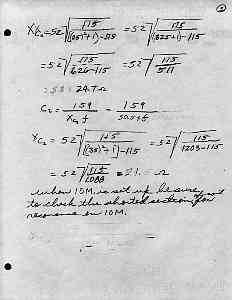 XC₂ = 52 √(115 / ((25)²+1)-115) = 52 √(115 / (625+1)-115)
= 52 √(115 / 626-115) = 52 √(115 / 511)
= 24.7 Ω
C₂ = 159 / XC₂ f = 159 /
XC₂ = 52 √(115 / [(35)²+1]-115) = 52 √(115 / 1203-115)
= 52 √(115 / 1088) = 21. Ω
when 10M. is set up be sure
to check the shorted section for
resonance on 10M.